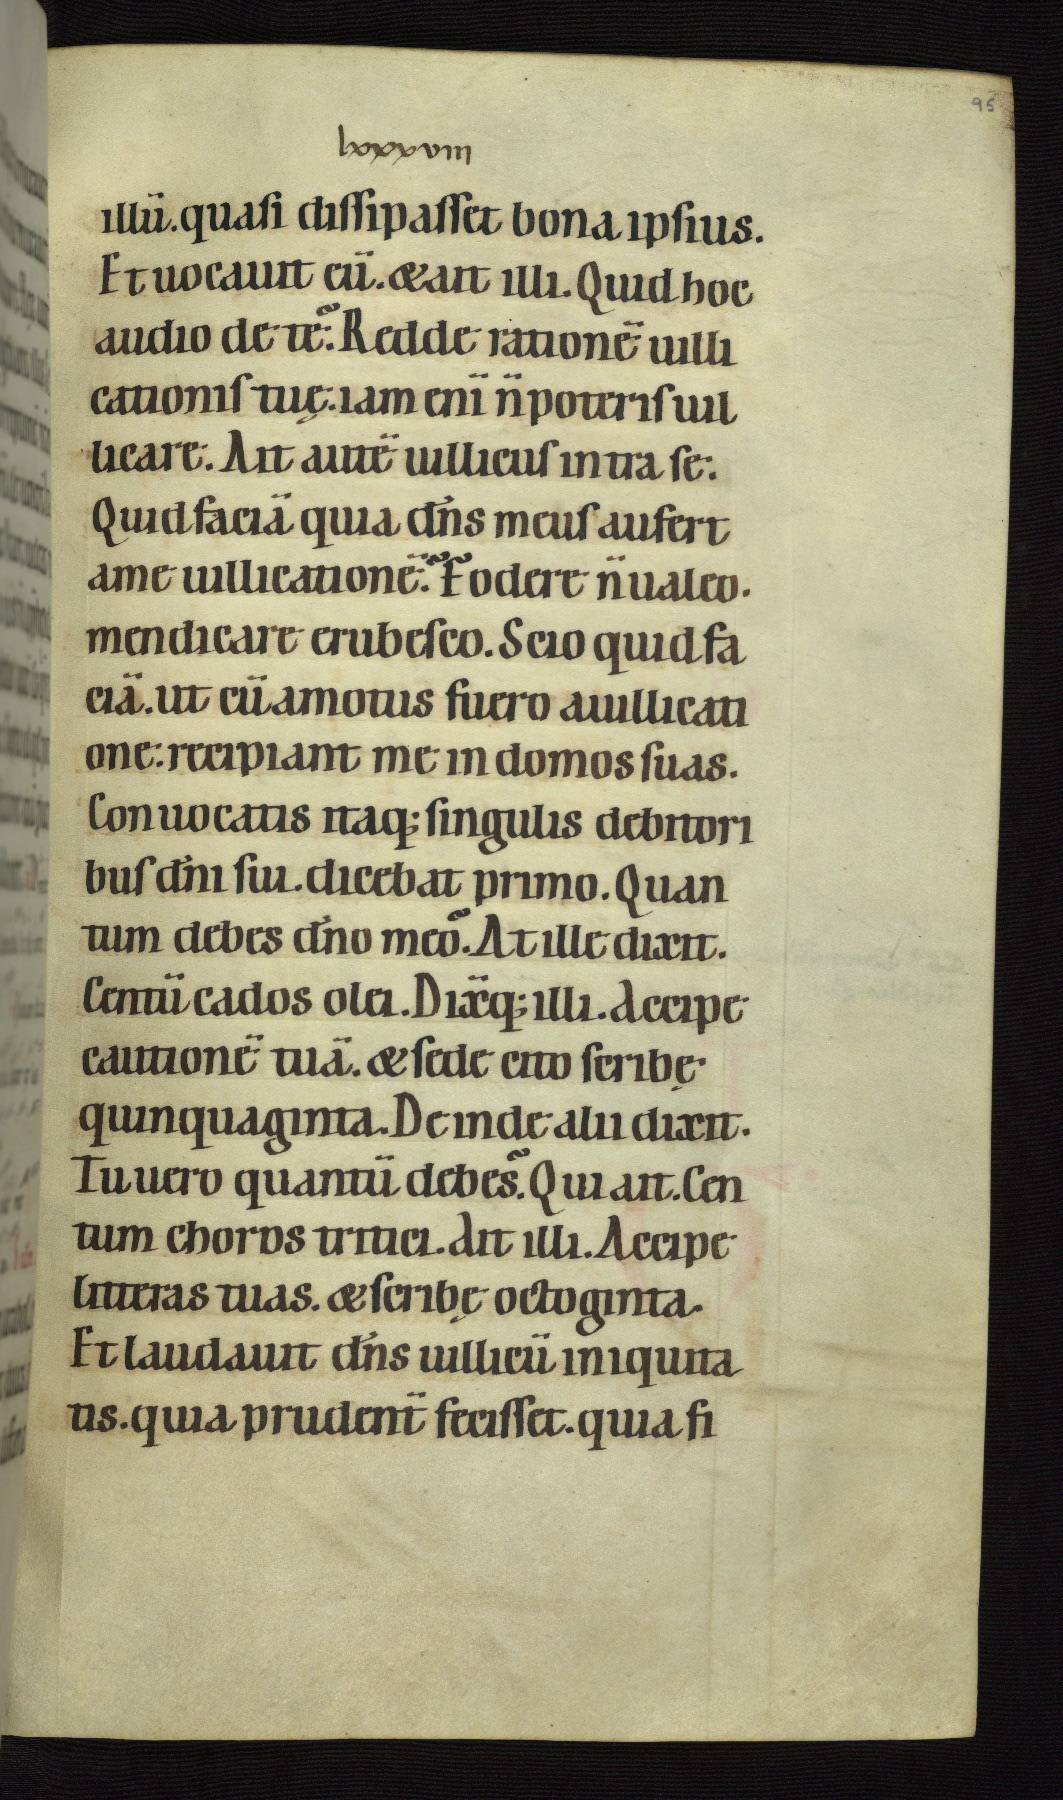 95
lxxxviii
illū. quaſi diſſipaſſet bona ipſius.
Et uocauit eū. & ait illi. Quid hoc
audio de te? Redde rationē uilli
cationiſ tuę. iam enī n̄ poteriſ uil
licare. Ait autē uillicuſ intra ſe.
Quid faciā quia dn̄s meuſ aufert
a me uillicationē? Fodere n̄ ualeo.
mendicare erubeſco. Scio quid fa
ciā. ut cū amotus fuero a uillicati
one. recipiant me in domos ſuas.
Conuocatis itaq; ſingulis debitori
buſ dn̄i ſui. dicebat primo. Quan
tum debes dn̄o meo? At ille dixit.
Centū cados olei. Dix̄q; illi. Accipe
cautionē tuā. & ſede cito ſcribę
quinquaginta. Deinde alii dixit.
Tu uero quantū debes? Qui ait. Cen
tum choros tritici. Ait illi. Accipe
litteras tuas. & ſcribę octoginta.
Et laudauit dn̄s uillicū iniquita
tis. quia prudent̄ feciſſet. quia fi